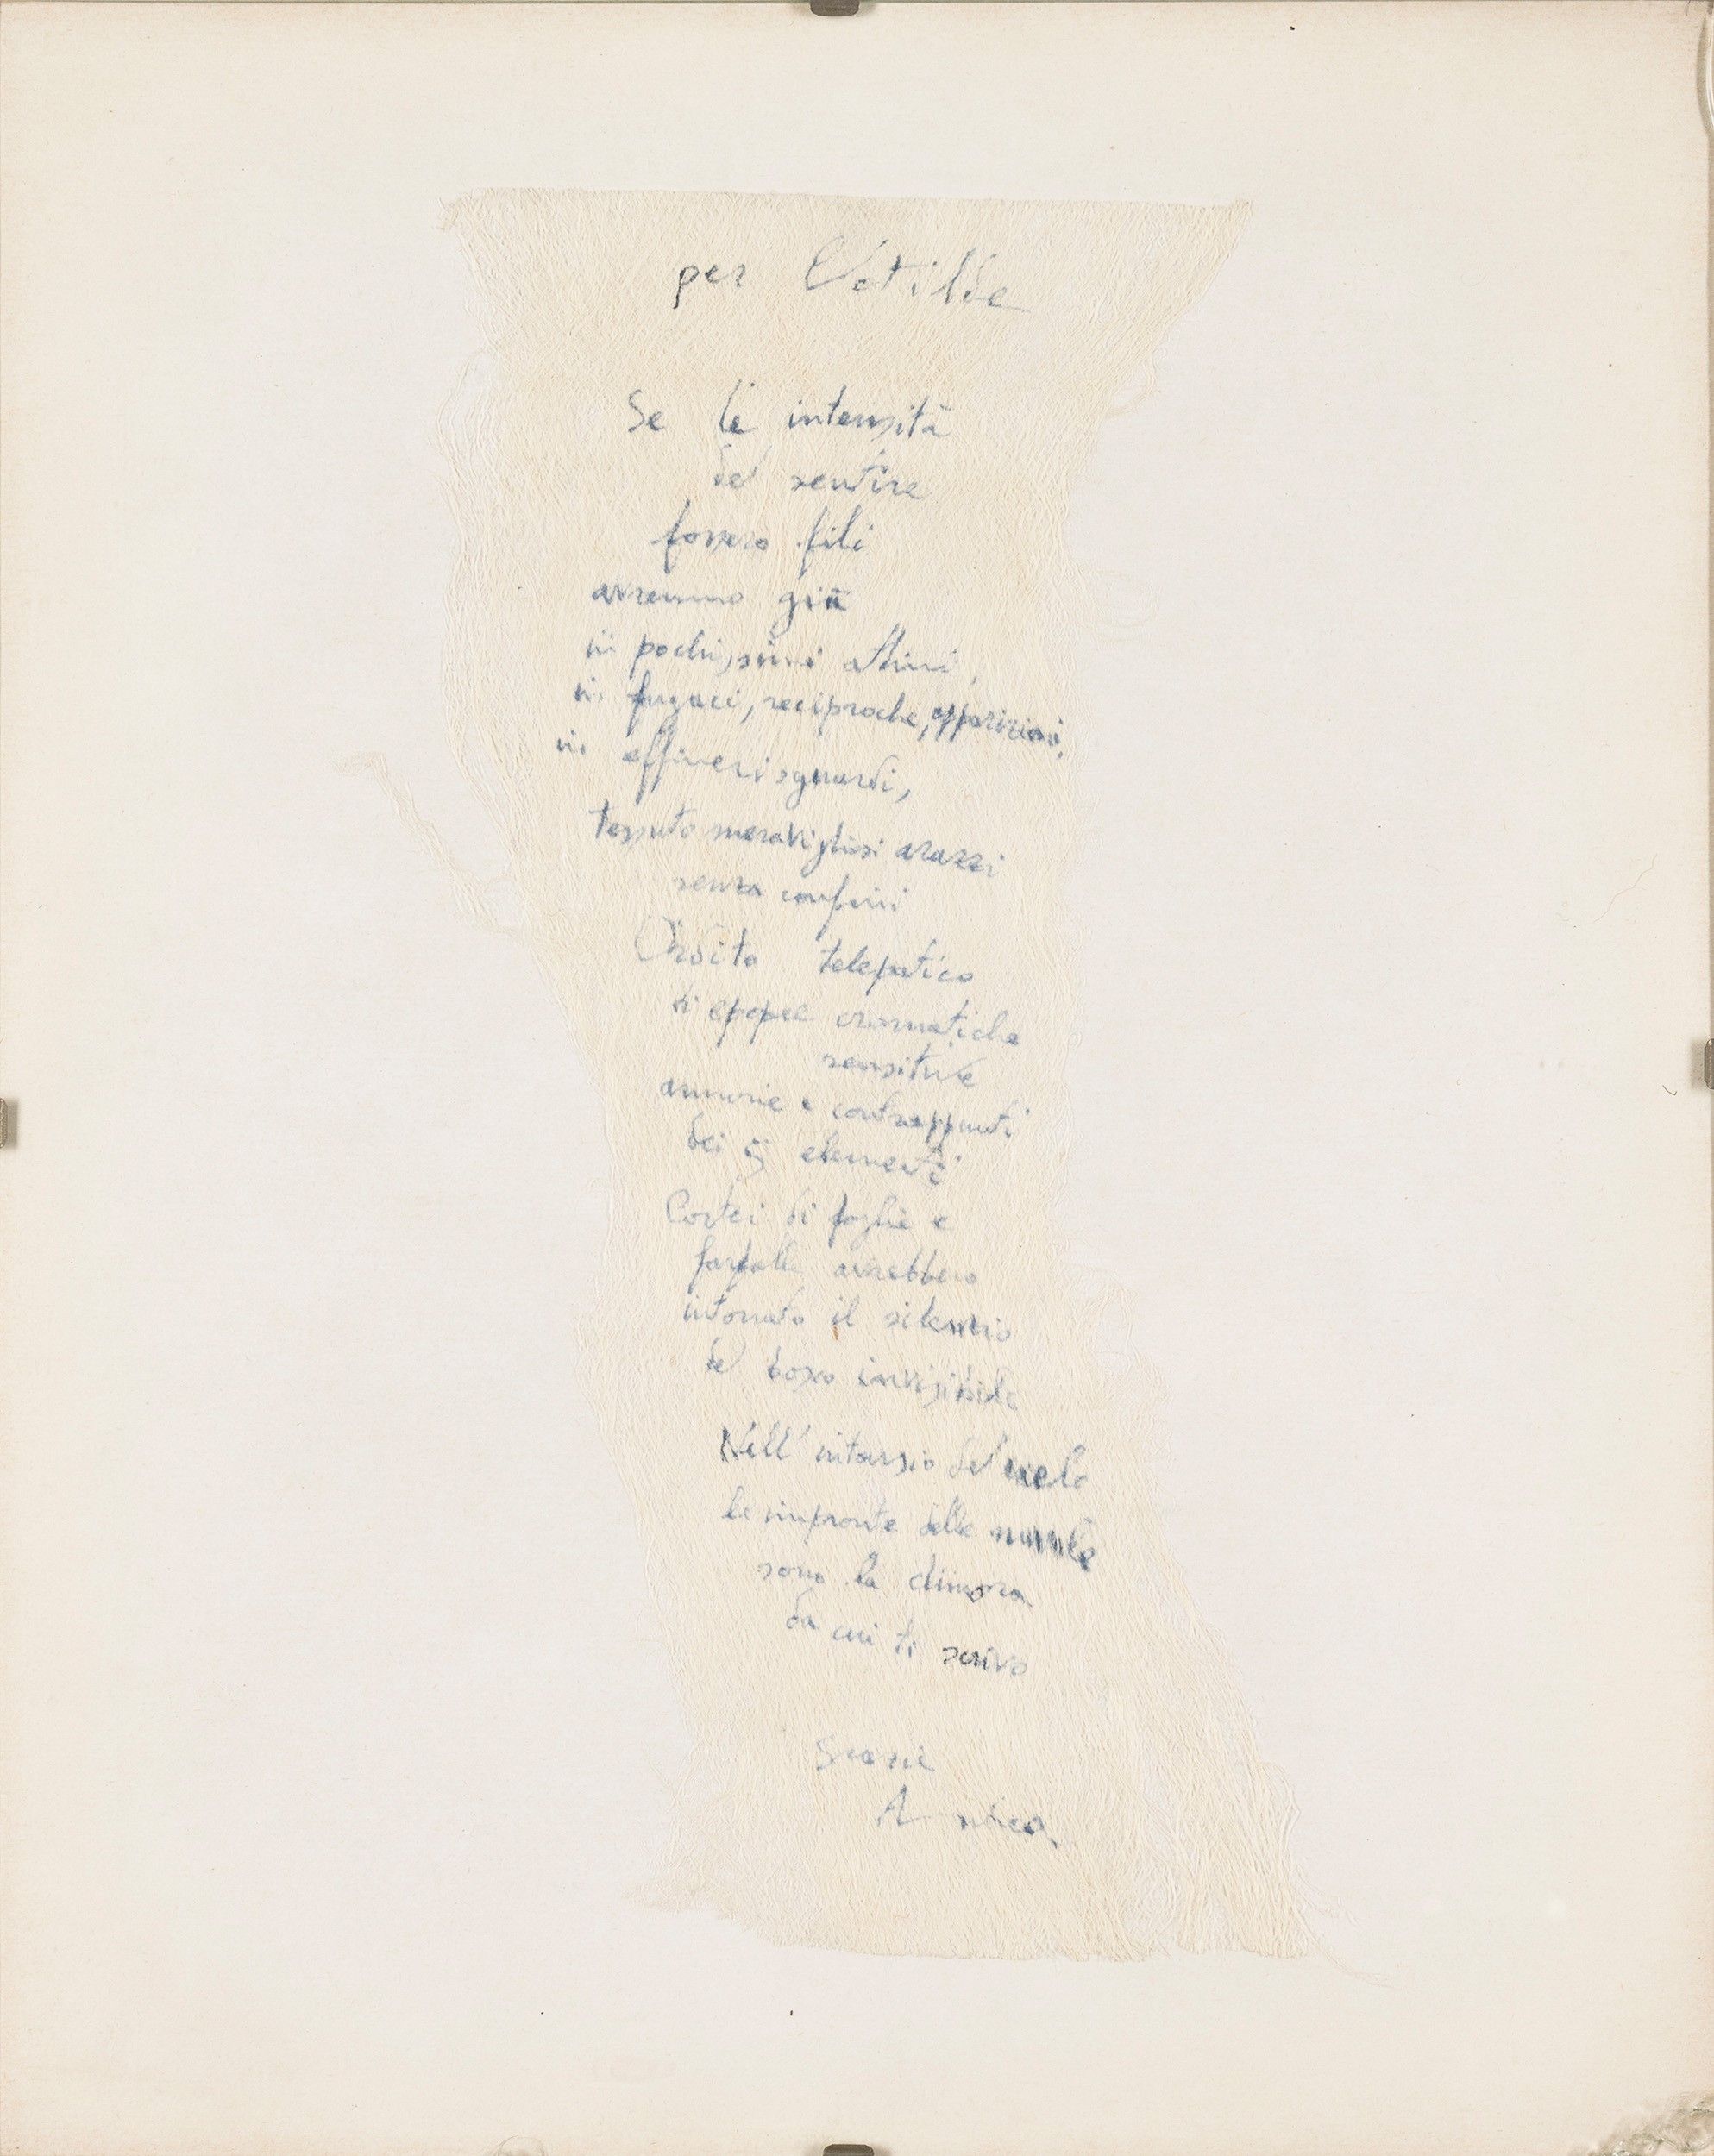 per Clotilde
Se le intensità
del sentire
fossero fili
avremmo già
in pochissimi attimi,
in fugaci, reciproche, apparizioni,
in effimeri sguardi,
tessuto meravigliosi arazzi
senza confini
Ordito telepatico
di epopee cromatiche
sensitive
armonie e contrappunti
dei 5 elementi
Cortei di foglie e
farfalle avrebbero
intonato il silenzio
del bosco invisibile
Nell'intarsio del cielo
le impronte delle nuvole
sono la dimora
da cui ti scrivo
Grazie